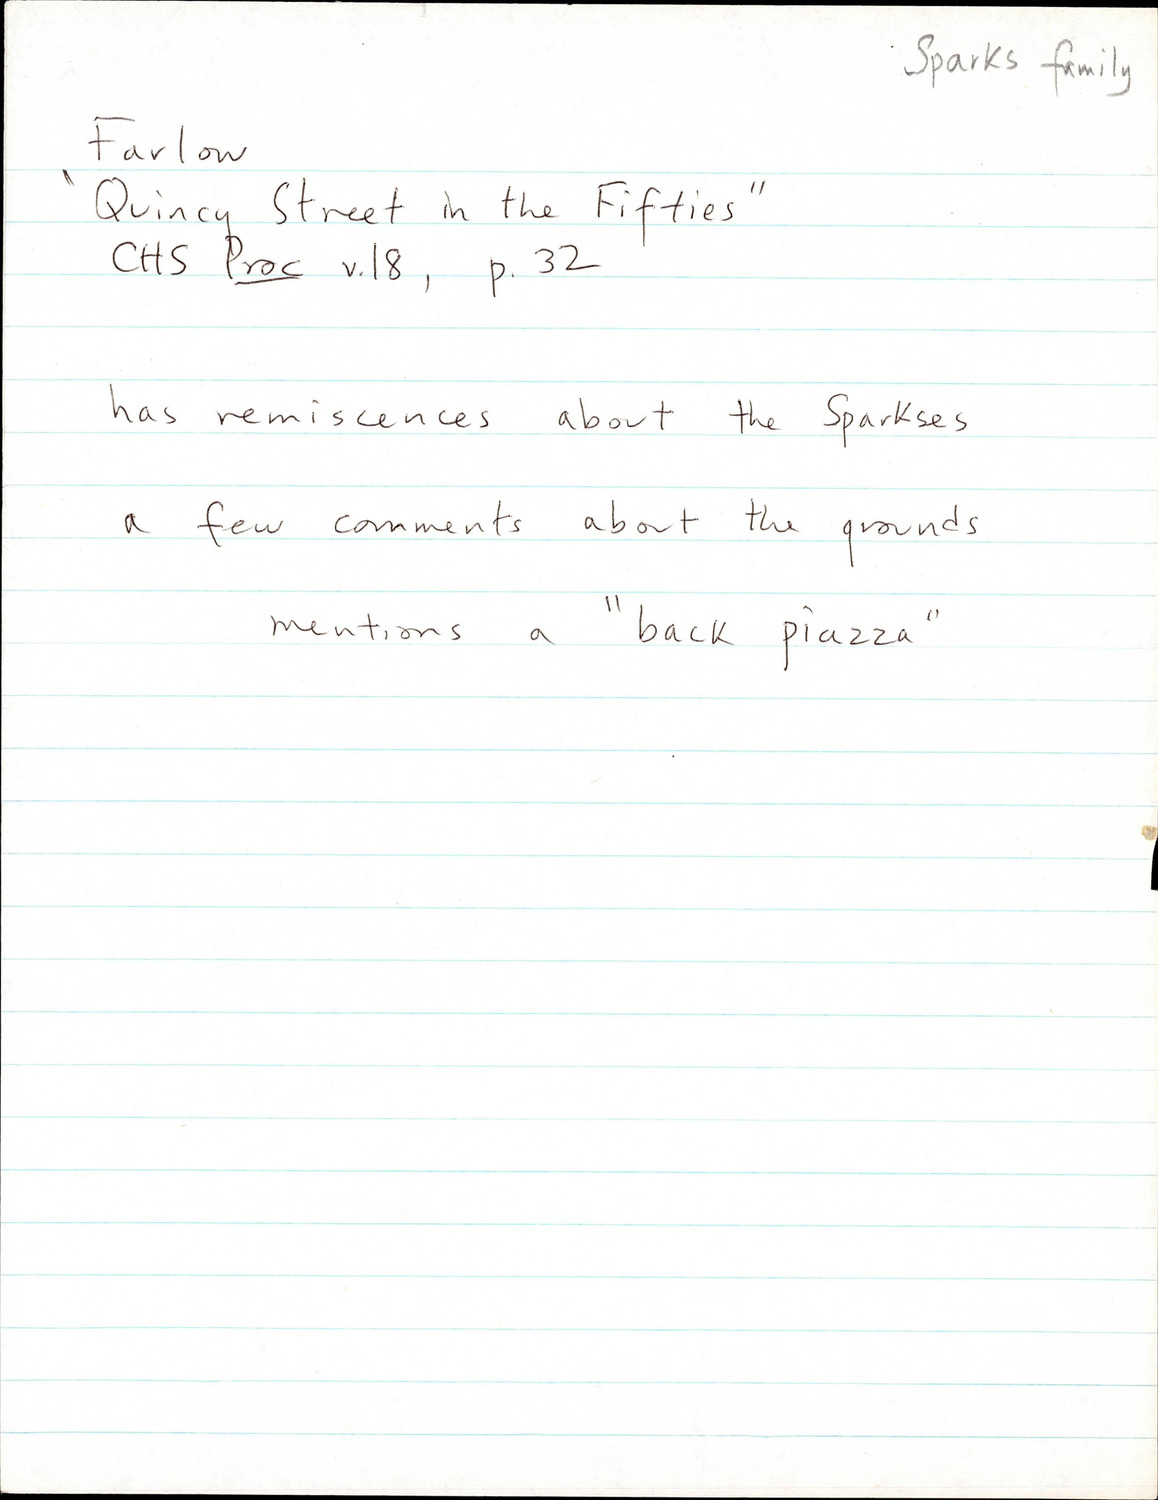 Sparks family
Farlow
"Quincy Street in the Fifties"
CHS Proc v.18, p. 32
has remiscences about the Sparkses
a few comments about the grounds
mentions a "back piazza"